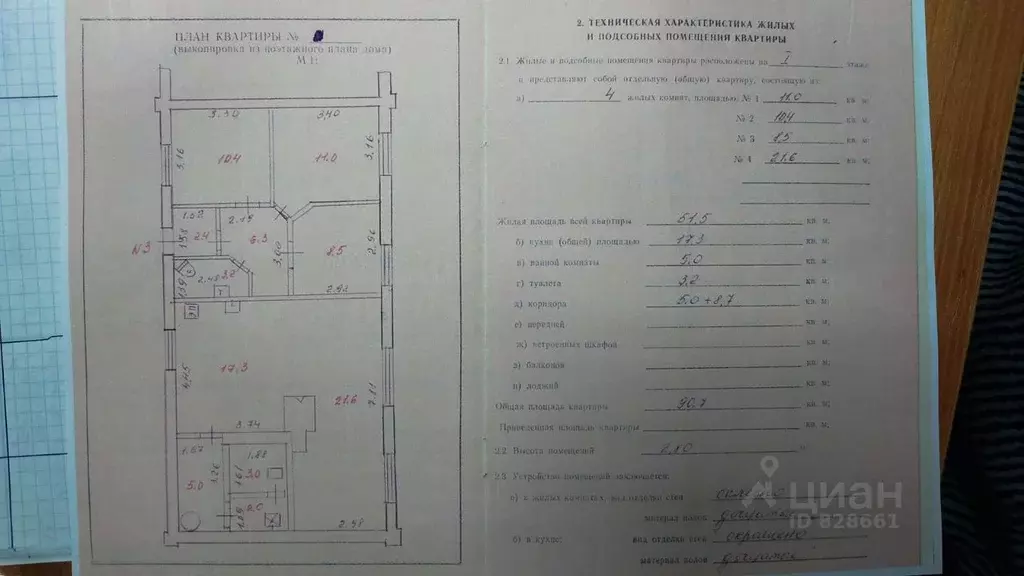 ПЛАН КВАРТИРЫ №
(выкопировка из поэтажного плана дома)
М 1:
3.30
3.40
3.16
10.4
11.0
3.16
1.52
2.4
2.19
6.3
3.00
8.5
2.96
N3
2.48
3.2
2.92
17.3
4.45
21.6
7.11
3.74
1.67
1.88
5.0
3.0
2.38
2. ТЕХНИЧЕСКАЯ ХАРАКТЕРИСТИКА ЖИЛЫХ
И ПОДСОБНЫХ ПОМЕЩЕНИЯ КВАРТИРЫ
2.1. Жилые и подсобные помещения квартиры расположены на I этаже
и представляют собой отдельную (общую) квартиру, состоящую из:
а) 4 жилых комнат, площадью: № 1 11.0 кв. м;
№ 2 10.4 кв. м;
№ 3 8.5 кв. м;
№ 4 21.6 кв. м;
Жилая площадь всей квартиры 51,5 кв. м;
б) кухни (общей) площадью 17.3 кв. м;
в) ванной комнаты 5.0 кв. м;
г) туалета 3.2 кв. м;
д) коридора 5.0 + 8,7 кв. м;
е) передней кв. м;
ж) встроенных шкафов кв. м;
з) балконов кв. м;
и) лоджий кв. м;
Общая площадь квартиры 90.7 кв. м;
Приведенная площадь квартиры кв. м;
2.2. Высота помещений 2.80
2.3. Устройство помещений заключается:
а) в жилых комнатах, вид отделки стен
материал полов дощатые
б) в кухне: вид отделки стен окрашено
материал полов дощатые
циан
ID 828661